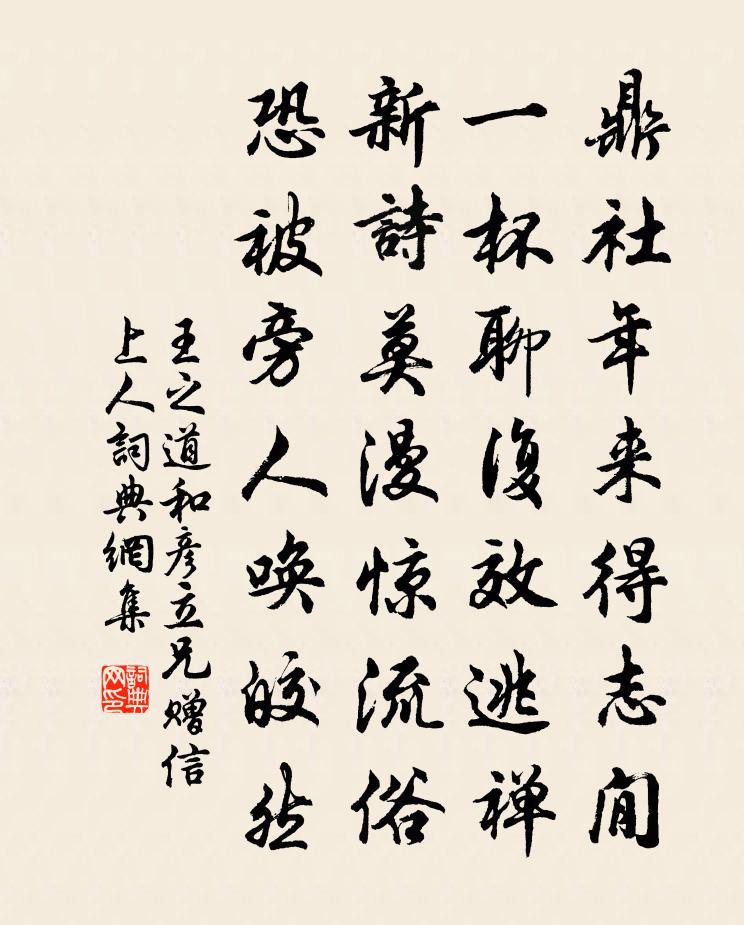 鼎社年来得志閒
一杯聊復效逃禅
新詩莫漫惊流俗
恐被旁人唤皎然
王之道和彦立兄赠信
上人詞典網集
詞典
网印